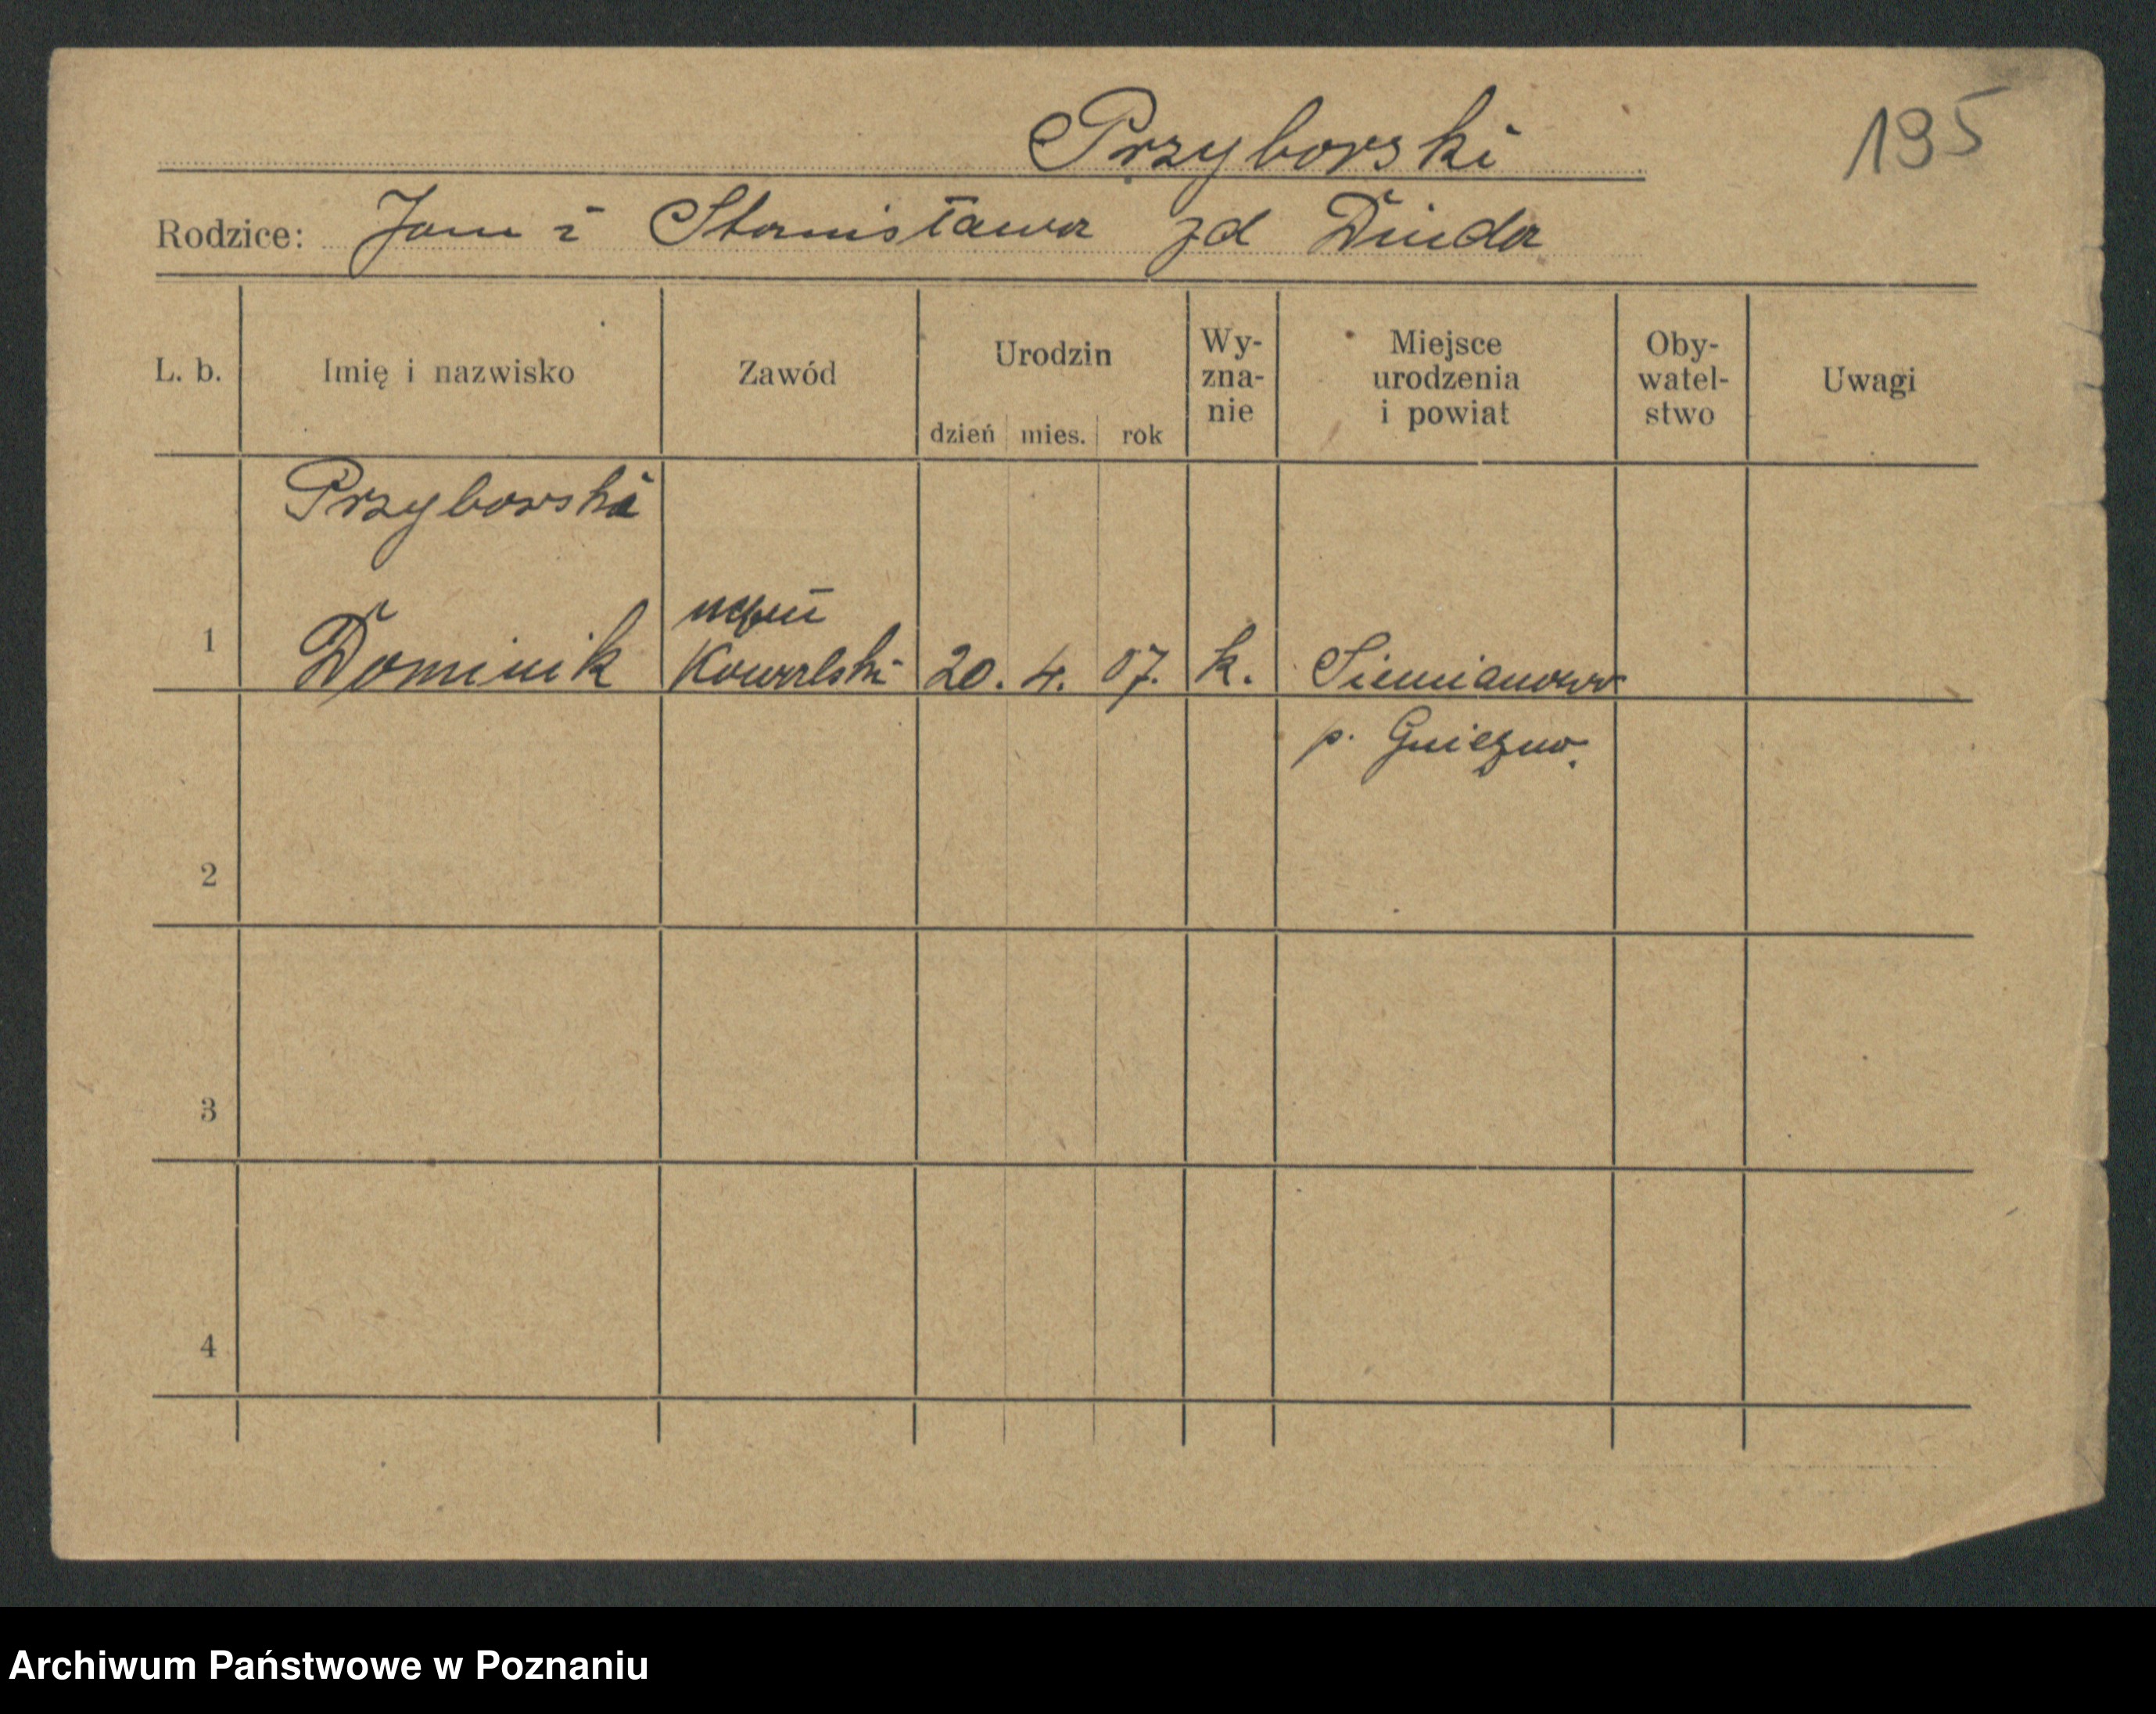 Przyborski
195
Rodzice: Jan i Stanisława zd Duda
L. b. Imię i nazwisko Zawód Urodzin dzień mies. rok Wy-zna-nie Miejsce urodzenia i powiat Oby-watel-stwo Uwagi
Przyborski
1 Dominik uczeń Kowalski 20. 4. 07. k. Siemianowo
p. Gniezno.
2
3
4
Archiwum Państwowe w Poznaniu